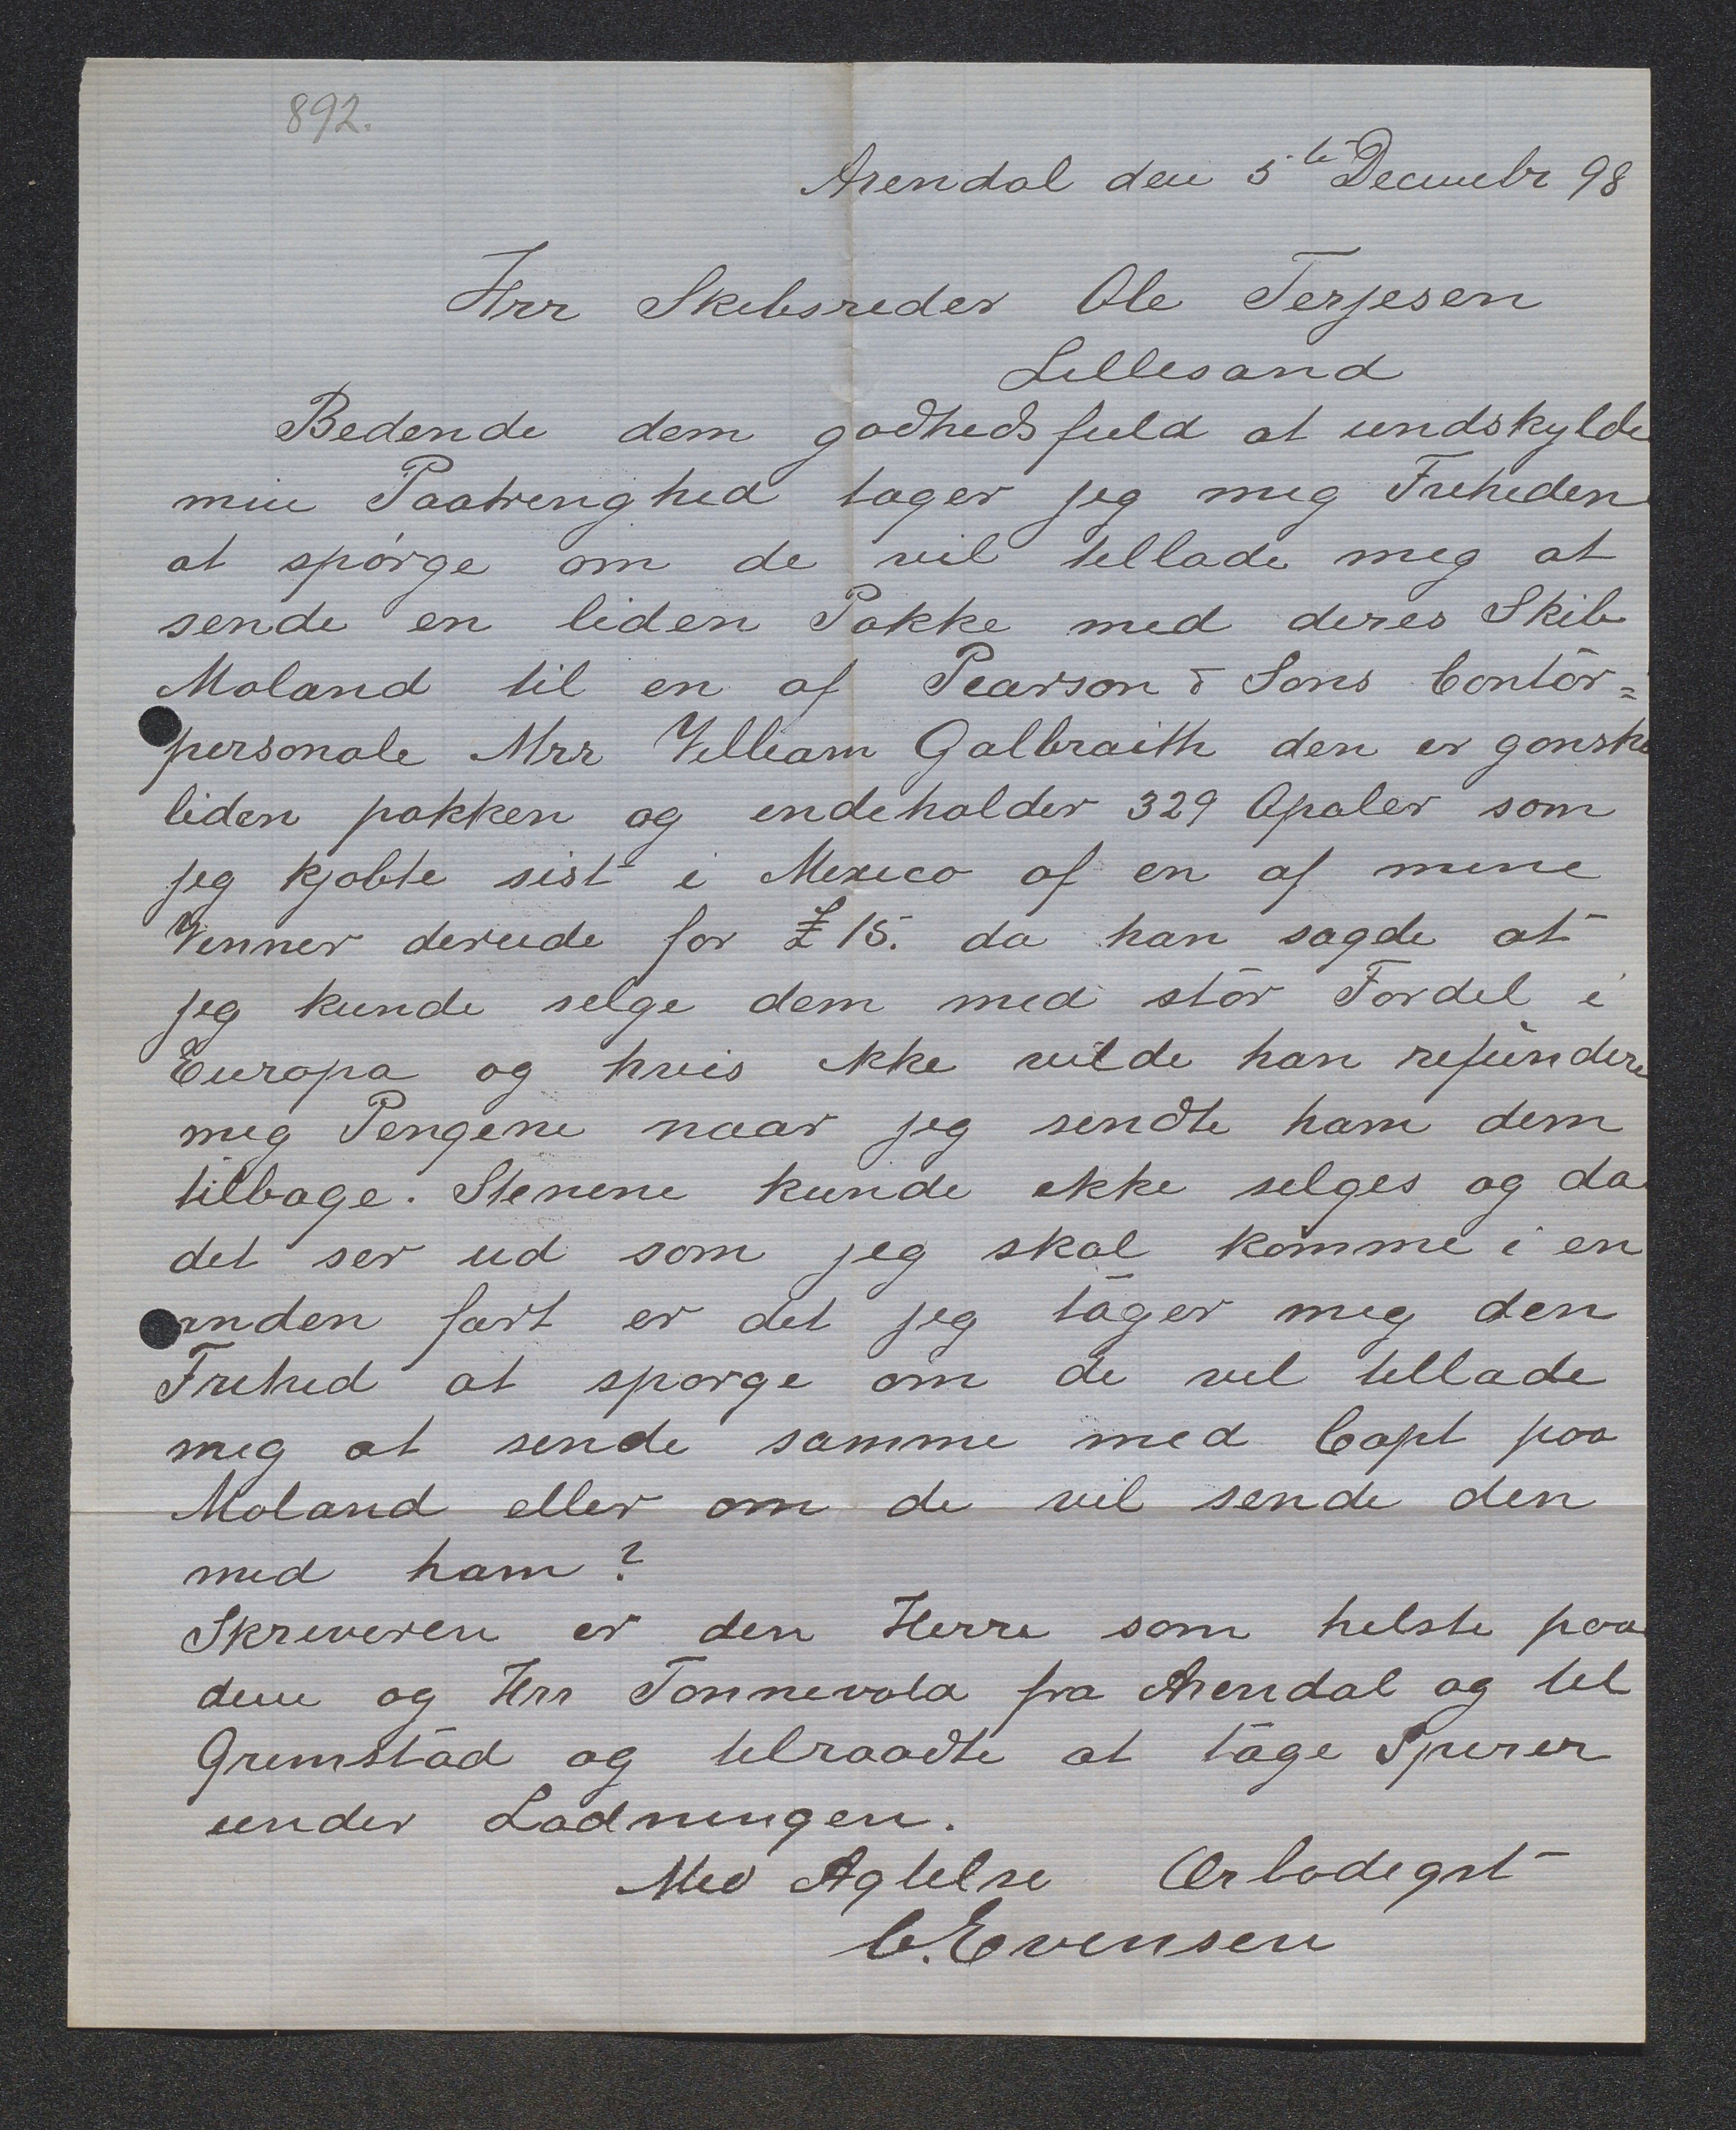 892.
Arendal den 5te Decembr 98
Hrr Skibsreder Ole Terjesen
Lillesand
Bedende dem godhedsfuld at undskylde
min Paatrenghed tager jeg mig Friheden
at spörge om de vil tillade mig at
sende en liden Pakke med deres Skib
Moland til en af Pearson & Sons Contör=
personale Mrr Villiam Galbraith den er ganske
liden pakken og indeholder 329 Opaler som
jeg kjobte sist i Mexico af en af mine
Venner derude for £ 15. da han sagde at
jeg kunde selge dem med stor Fordel i
Europa og hvis ikke vilde han refundere
mig Pengene naar jeg sendte ham dem
tilbage. Stenene kunde ikke selges og da
det ser ud som jeg skal komme i en
anden fart er det jeg tager mig den
Frihed at sporge om de vil tillade
mig at sende samme med Capt paa
Moland eller om de vil sende den
med ham?
Skriveren er den Herre som hilste paa
dem og Hrr Tonnevold fra Arendal og til
Grimstad og tilraadte at tage Spirer
under Ladningen.
Med Agtelse Ærbodigst
C. Evensen